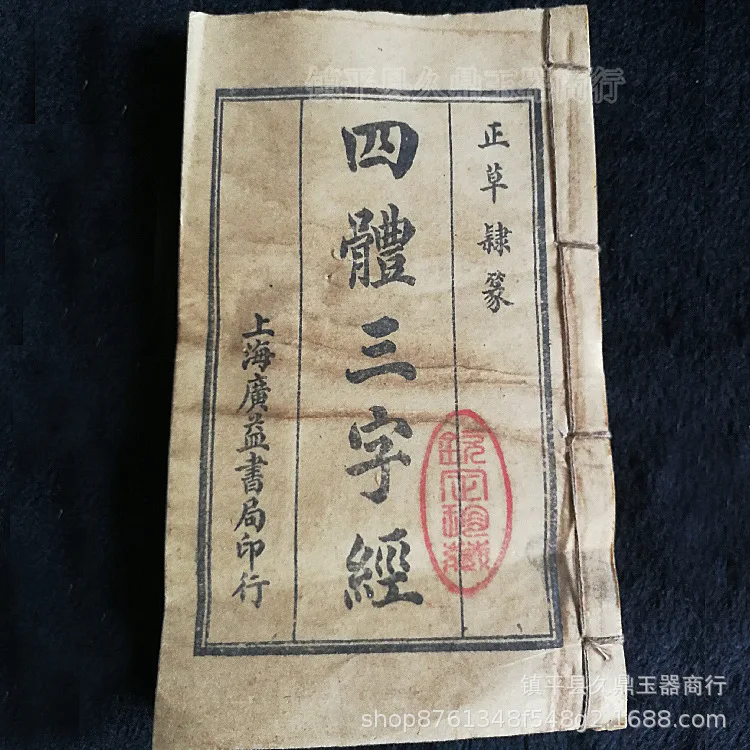 镇平县久鼎玉器商行
正草隸篆
四體三字經
上海廣益書局印行
镇平县久鼎玉器商行
shop8761348f548g2.1688.com